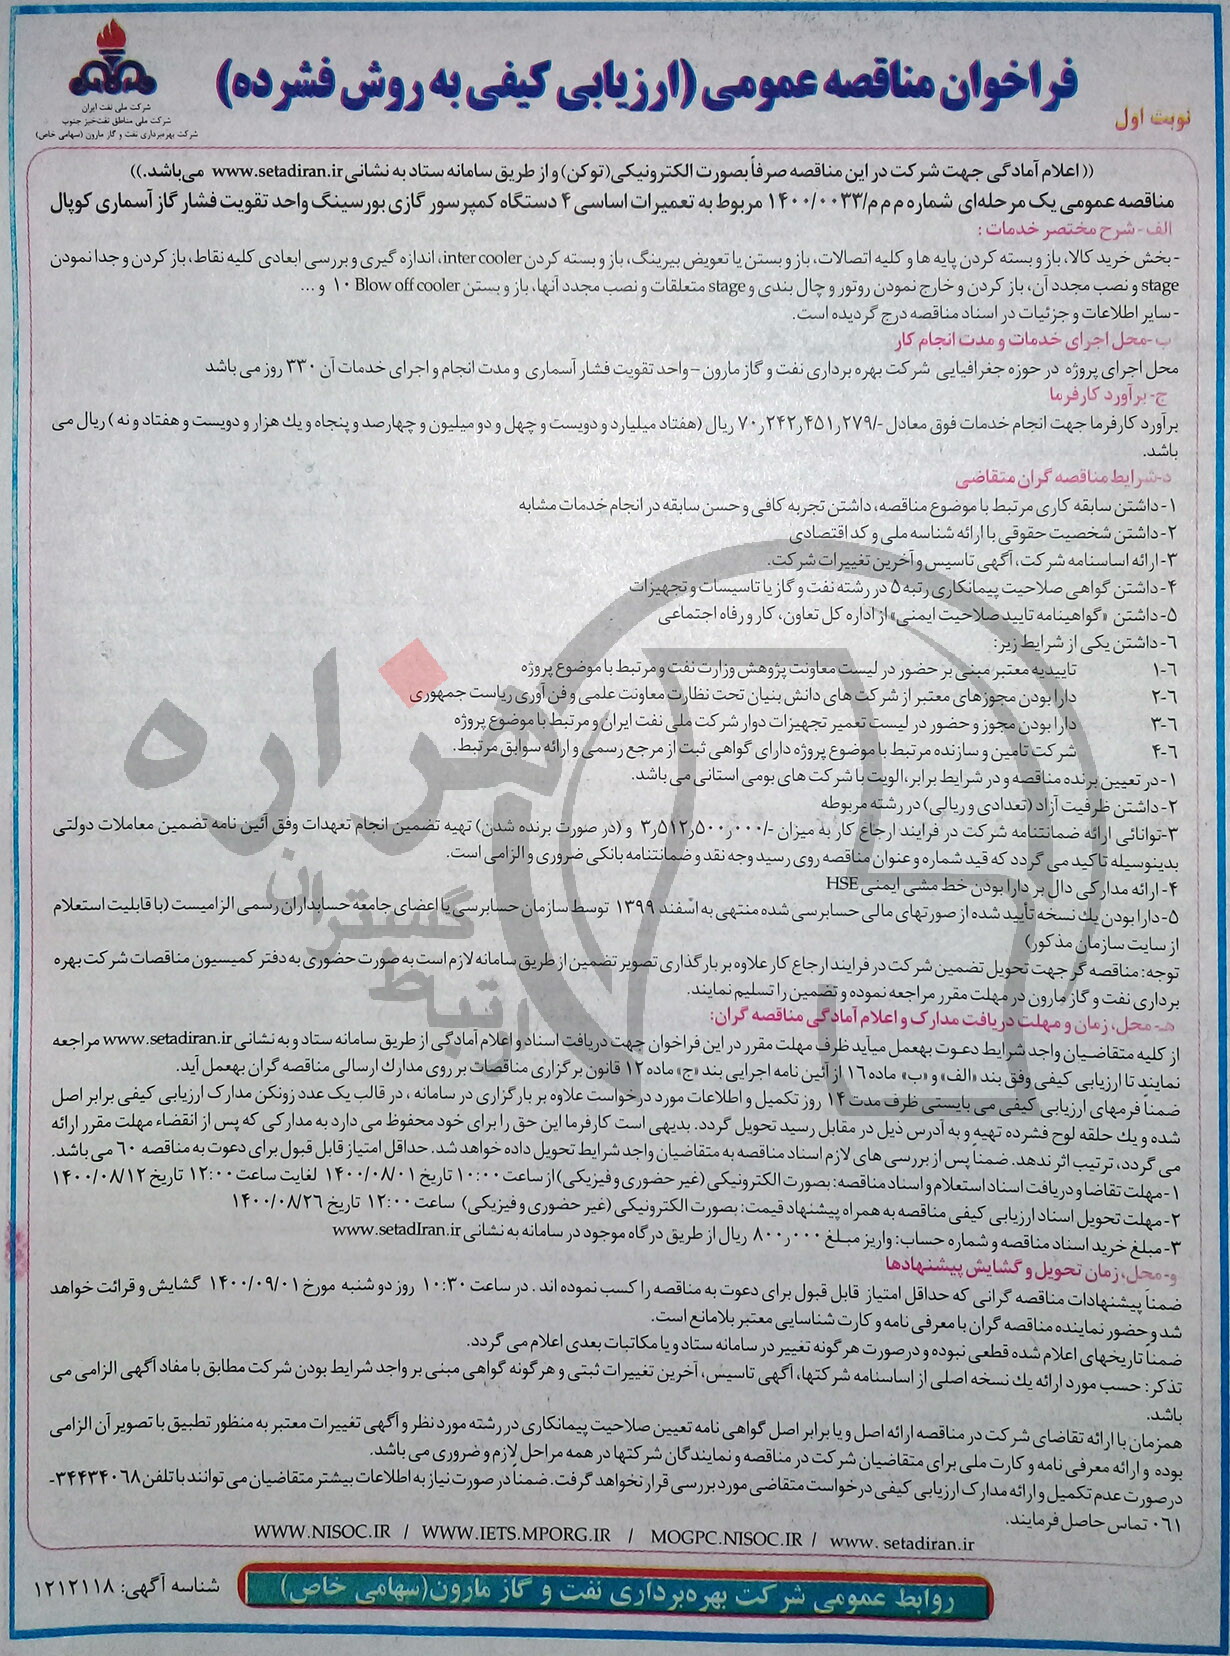 فراخوان مناقصه عمومی (ارزیابی کیفی به روش فشرده)
نوبت اول
شرکت ملی نفت ایران
شرکت ملی مناطق نفت‌خیز جنوب
شرکت بهره‌برداری نفت و گاز مارون (سهامی خاص)
(( اعلام آمادگی جهت شرکت در این مناقصه صرفاً بصورت الکترونیکی(توکن) و از طریق سامانه ستاد به نشانی www.setadiran.ir می‌باشد.))
مناقصه عمومی یک مرحله‌ای شماره م م م/۱۴۰۰/۰۰۳۳ مربوط به تعمیرات اساسی ۴ دستگاه کمپرسور گازی بورسینگ واحد تقویت فشار گاز آسماری کوپال
الف- شرح مختصر خدمات :
- بخش خرید کالا، باز و بسته کردن پایه ها و کلیه اتصالات، باز و بستن یا تعویض بیرینگ، باز و بسته کردن inter cooler، اندازه گیری و بررسی ابعادی کلیه نقاط، باز کردن و جدا نمودن
stage و نصب مجدد آن، باز کردن و خارج نمودن روتور و چال بندی و stage متعلقات و نصب مجدد آنها، باز و بستن Blow off cooler ۱۰ و ...
- سایر اطلاعات و جزئیات در اسناد مناقصه درج گردیده است.
ب -محل اجرای خدمات و مدت انجام کار
محل اجرای پروژه در حوزه جغرافیایی شرکت بهره برداری نفت و گاز مارون – واحد تقویت فشار آسماری و مدت انجام و اجرای خدمات آن ۳۳۰ روز می باشد
ج- برآورد کارفرما
برآورد کارفرما جهت انجام خدمات فوق معادل -/۷۰٫۲۴۲٫۴۵۱٫۲۷۹ ریال (هفتاد میلیارد و دویست و چهل و دو میلیون و چهارصد و پنجاه و یك هزار و دویست و هفتاد و نه ) ریال می
باشد.
د-شرایط مناقصه گران متقاضی
۱- داشتن سابقه کاری مرتبط با موضوع مناقصه، داشتن تجربه کافی و حسن سابقه در انجام خدمات مشابه
۲- داشتن شخصیت حقوقی با ارائه شناسه ملی و کد اقتصادی
۳- ارائه اساسنامه شرکت، آگهی تاسیس و آخرین تغییرات شرکت.
۴- داشتن گواهی صلاحیت پیمانکاری رتبه ۵ در رشته نفت و گاز یا تاسیسات و تجهیزات
۵- داشتن «گواهینامه تایید صلاحیت ایمنی» از اداره کل تعاون، کار و رفاه اجتماعی
۶- داشتن یکی از شرایط زیر:
۶-۱ تاییدیه معتبر مبنی بر حضور در لیست معاونت پژوهش وزارت نفت و مرتبط با موضوع پروژه
۶-۲ دارا بودن مجوزهای معتبر از شرکت های دانش بنیان تحت نظارت معاونت علمی و فن آوری ریاست جمهوری
۶-۳ دارا بودن مجوز و حضور در لیست تعمیر تجهیزات دوار شرکت ملی نفت ایران و مرتبط با موضوع پروژه
۶-۴ شرکت تامین و سازنده مرتبط با موضوع پروژه دارای گواهی ثبت از مرجع رسمی و ارائه سوابق مرتبط.
۱- در تعیین برنده مناقصه و در شرایط برابر، الویت با شرکت های بومی استانی می باشد.
۲- داشتن ظرفیت آزاد (تعدادی و ریالی) در رشته مربوطه
۳-توانائی ارائه ضمانتنامه شرکت در فرایند ارجاع کار به میزان -/۳٫۵۱۲٫۵۰۰٫۰۰۰ و (در صورت برنده شدن) تهیه تضمین انجام تعهدات وفق آئین نامه تضمین معاملات دولتی
بدینوسیله تاکید می گردد که قید شماره و عنوان مناقصه روی رسید وجه نقد و ضمانتنامه بانکی ضروری و الزامی است.
۴- ارائه مدارکی دال بر دارا بودن خط مشی ایمنی HSE
۵- دارا بودن یك نسخه تأیید شده از صورتهای مالی حسابرسی شده منتهی به اسفند ۱۳۹۹ توسط سازمان حسابرسی یا اعضای جامعه حسابداران رسمی الزامیست (با قابلیت استعلام
از سایت سازمان مذکور)
توجه: مناقصه گر جهت تحویل تضمین شرکت در فرایند ارجاع کار علاوه بر بارگذاری تصویر تضمین از طریق سامانه لازم است به صورت حضوری به دفتر کمیسیون مناقصات شرکت بهره
برداری نفت و گاز مارون در مهلت مقرر مراجعه نموده و تضمین را تسلیم نمایند.
هـ- محل، زمان و مهلت دریافت مدارک و اعلام آمادگی مناقصه گران:
از کلیه متقاضیان واجد شرایط دعوت بهعمل میآید ظرف مهلت مقرر در این فراخوان جهت دریافت اسناد و اعلام آمادگی از طریق سامانه ستاد و به نشانی www.setadiran.ir مراجعه
نمایند تا ارزیابی کیفی وفق بند «الف» و «ب» ماده ۱۶ از آئین نامه اجرایی بند «ج» ماده ۱۲ قانون برگزاری مناقصات بر روی مدارك ارسالی مناقصه گران بهعمل آید.
ضمناً فرمهای ارزیابی کیفی می بایستی ظرف مدت ۱۴ روز تکمیل و اطلاعات مورد درخواست علاوه بر بارگزاری در سامانه ، در قالب یک عدد زونکن مدارک ارزیابی کیفی برابر اصل
شده و یك حلقه لوح فشرده تهیه و به آدرس ذیل در مقابل رسید تحویل گردد. بدیهی است کارفرما این حق را برای خود محفوظ می دارد به مدارکی که پس از انقضاء مهلت مقرر ارائه
می گردد، ترتیب اثر ندهد. ضمناً پس از بررسی های لازم اسناد مناقصه به متقاضیان واجد شرایط تحویل داده خواهد شد. حداقل امتیاز قابل قبول برای دعوت به مناقصه ۶۰ می باشد.
۱- مهلت تقاضا و دریافت اسناد استعلام و اسناد مناقصه: بصورت الکترونیکی (غیر حضوری و فیزیکی) از ساعت ۱۰:۰۰ تاریخ ۱۴۰۰/۰۸/۰۱ لغایت ساعت ۱۲:۰۰ تاریخ ۱۴۰۰/۰۸/۱۲
۲- مهلت تحویل اسناد ارزیابی کیفی مناقصه به همراه پیشنهاد قیمت: بصورت الکترونیکی (غیر حضوری و فیزیکی) ساعت ۱۲:۰۰ تاریخ ۱۴۰۰/۰۸/۲۶
۳- مبلغ خرید اسناد مناقصه و شماره حساب: واریز مبـلـغ ۸۰۰٫۰۰۰ ریال از طریق درگاه موجود در سامانه به نشانی www.setadIran.ir
و- محل، زمان تحویل و گشایش پیشنهادها
ضمناً پیشنهادات مناقصه گرانی که حداقل امتیاز قابل قبول برای دعوت به مناقصه را کسب نموده اند . در ساعت ۱۰:۳۰ روز دو شنبه مورخ ۱۴۰۰/۰۹/۰۱ گشایش و قرائت خواهد
شد و حضور نماینده مناقصه گران با معرفی نامه و کارت شناسایی معتبر بلامانع است.
ضمناً تاریخهای اعلام شده قطعی نبوده و درصورت هرگونه تغییر در سامانه ستاد و یا مکاتبات بعدی اعلام می گردد.
تذکر: حسب مورد ارائه یك نسخه اصلی از اساسنامه شرکتها، آگهی تاسیس، آخرین تغییرات ثبتی و هرگونه گواهی مبنی بر واجد شرایط بودن شرکت مطابق با مفاد آگهی الزامی می
باشد.
همزمان با ارائه تقاضای شرکت در مناقصه ارائه اصل و یا برابر اصل گواهی نامه تعیین صلاحیت پیمانکاری در رشته مورد نظر و آگهی تغییرات معتبر به منظور تطبیق با تصویر آن الزامی
بوده و ارائه معرفی نامه و کارت ملی برای متقاضیان شرکت در مناقصه و نمایندگان شرکتها در همه مراحل لازم و ضروری می باشد.
درصورت عدم تکمیل و ارائه مدارک ارزیابی کیفی درخواست متقاضی مورد بررسی قرار نخواهد گرفت. ضمناً در صورت نیاز به اطلاعات بیشتر متقاضیان می توانند با تلفن ۳۴۴۳۴۰۶۸-
۰۶۱ تماس حاصل فرمایند.
WWW.NISOC.IR / WWW.IETS.MPORG.IR / MOGPC.NISOC.IR / www. setadiran.ir
روابط عمومی شرکت بهره‌برداری نفت و گاز مارون(سهامی خاص)
شناسه آگهی: ۱۲۱۲۱۱۸
هزاره
گستران
ارتباط